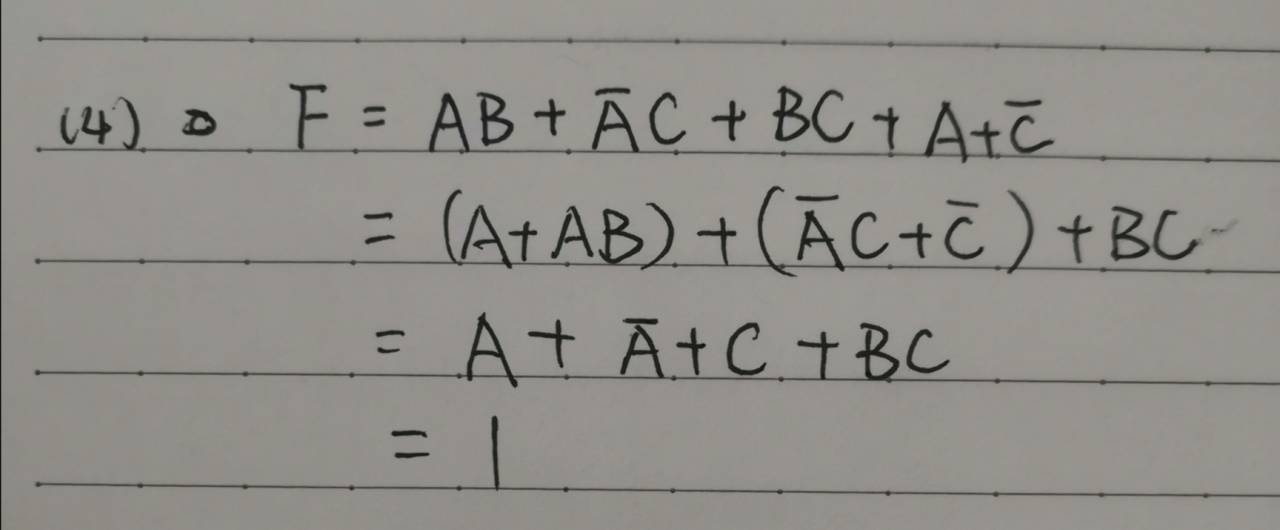 (4) F = AB + A̅C + BC + A + C̅
= (A + AB) + (A̅C + C̅) + BC
= A + A̅ + C + BC
= 1